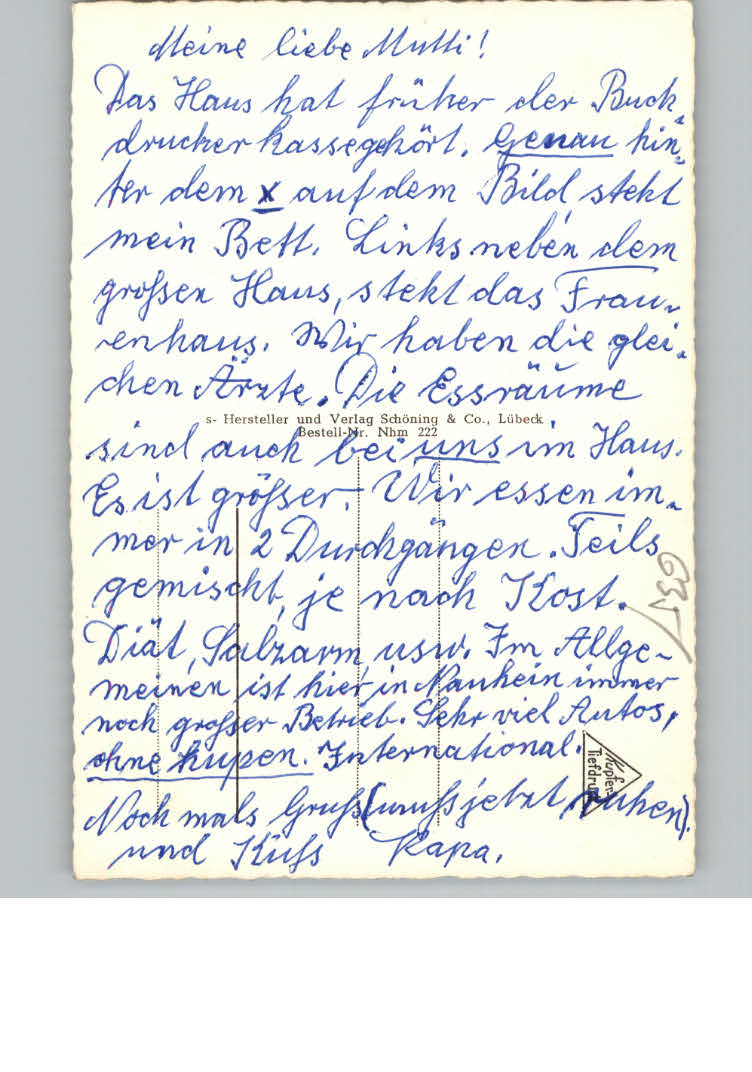 Meine liebe Mutti!
Das Haus hat früher der Buch-
druckerkasse gehört. Genau hin-
ter dem x auf dem Bild, steht
mein Bett. Links neben dem
großen Haus, steht das Frau-
enhaus. Wir haben die glei-
chen Ärzte. Die Essräume
s- Hersteller und Verlag Schöning & Co., Lübeck
Bestell-Nr. Nhm 222
sind auch bei uns im Haus.
Es ist größer. Wir essen im-
mer in 2 Durchgängen. Teils
gemischt, je nach Kost.
635
Diät, Salzarm, usw. Im Allge-
meinen, ist hier in Nauheim immer
noch großer Betrieb. Sehr viel Autos,
ohne hupen. International.
Kupfer-
Tiefdruck
Noch mals Gruß (muß jetzt ruhen).
und Kuß Papa.